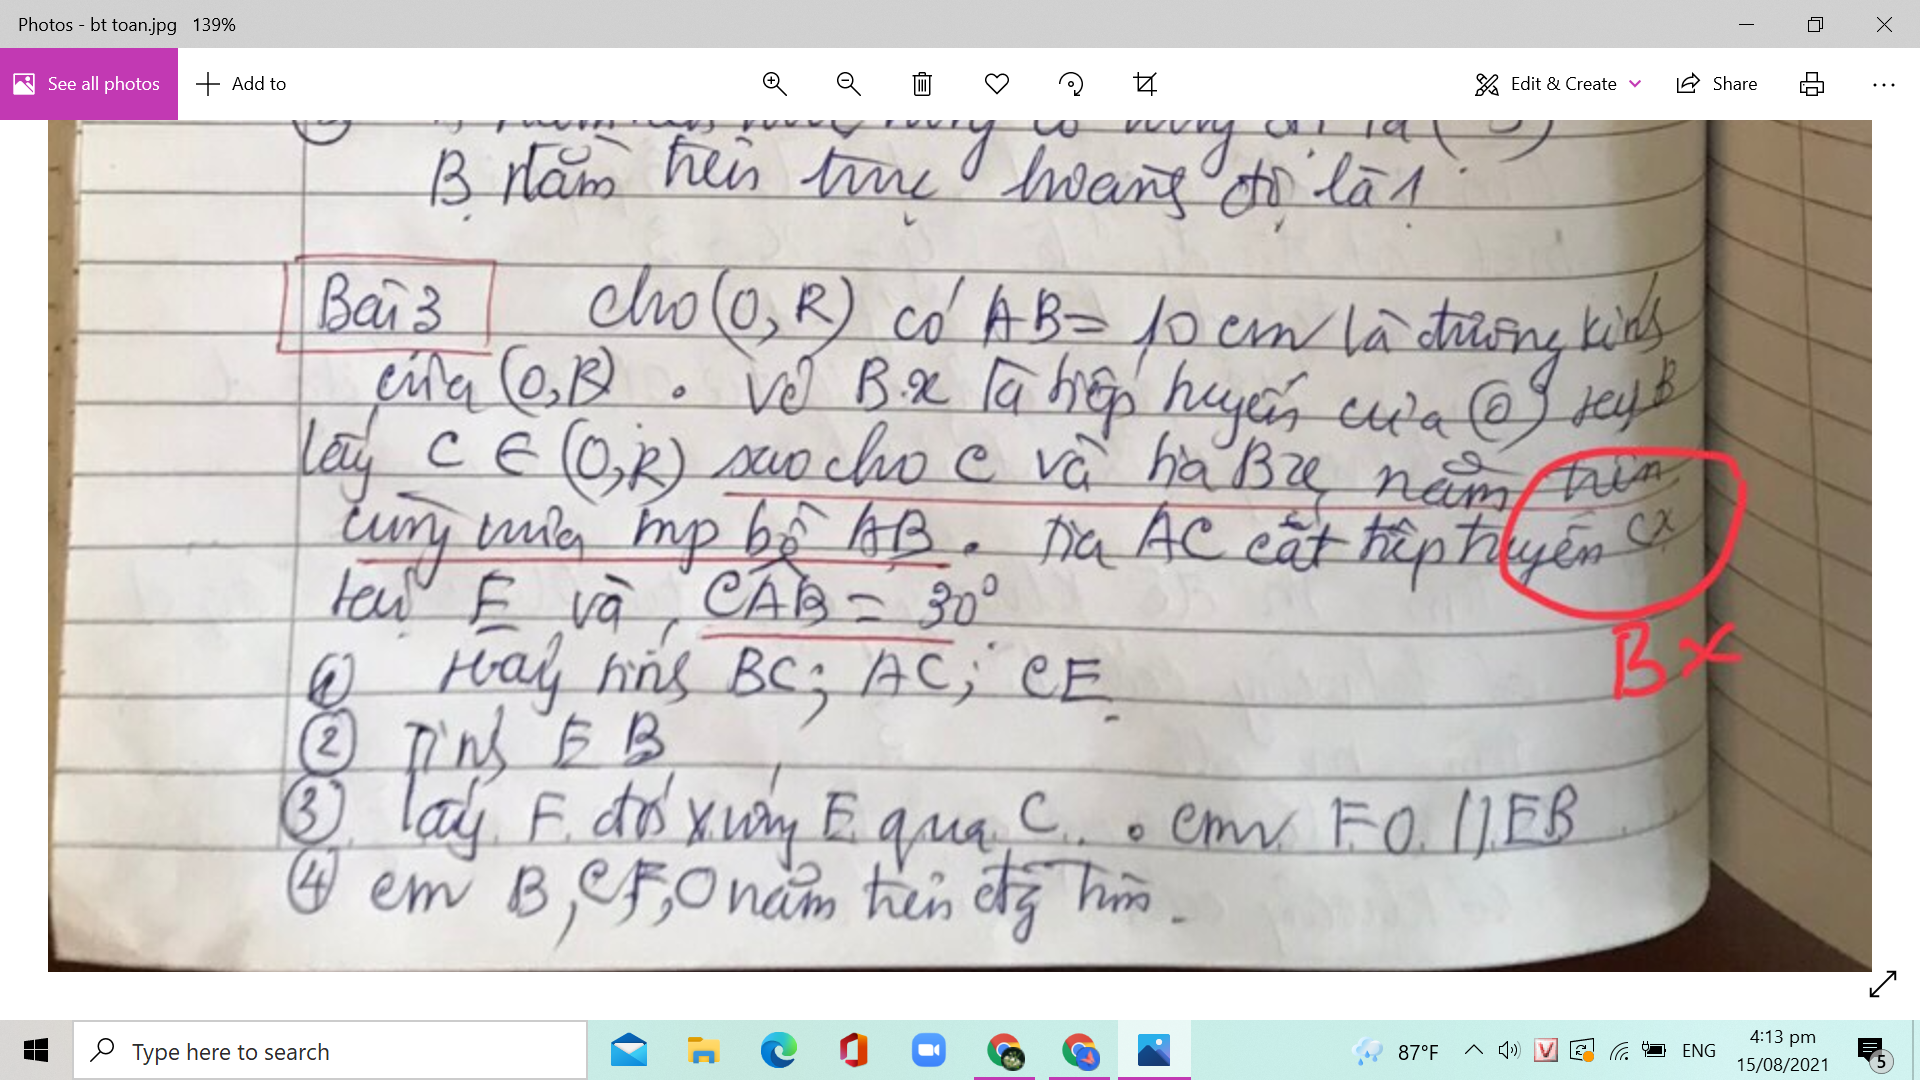 Photos - bt toan.jpg 139%
See all photos
Add to
Edit & Create
Share
B nằm trên trục hoành độ là 1
Bài 3 cho (O,R) có AB = 10 cm là đường kính
của (O,R). Vẽ Bx là tiếp tuyến của (O) tại B
lấy C ∈ (O,R) sao cho C và tia Bx nằm trên
cùng nửa mp bờ AB. Tia AC cắt tiếp tuyến Cx
tại E và CAB = 30°
Bx
① Hãy tính BC; AC; CE
② Tính EB
③ Lấy F đối xứng E qua C. cmr FO // EB
④ cm B, C, F, O nằm trên đg tròn.
Type here to search
87°F
ENG
4:13 pm
15/08/2021
5